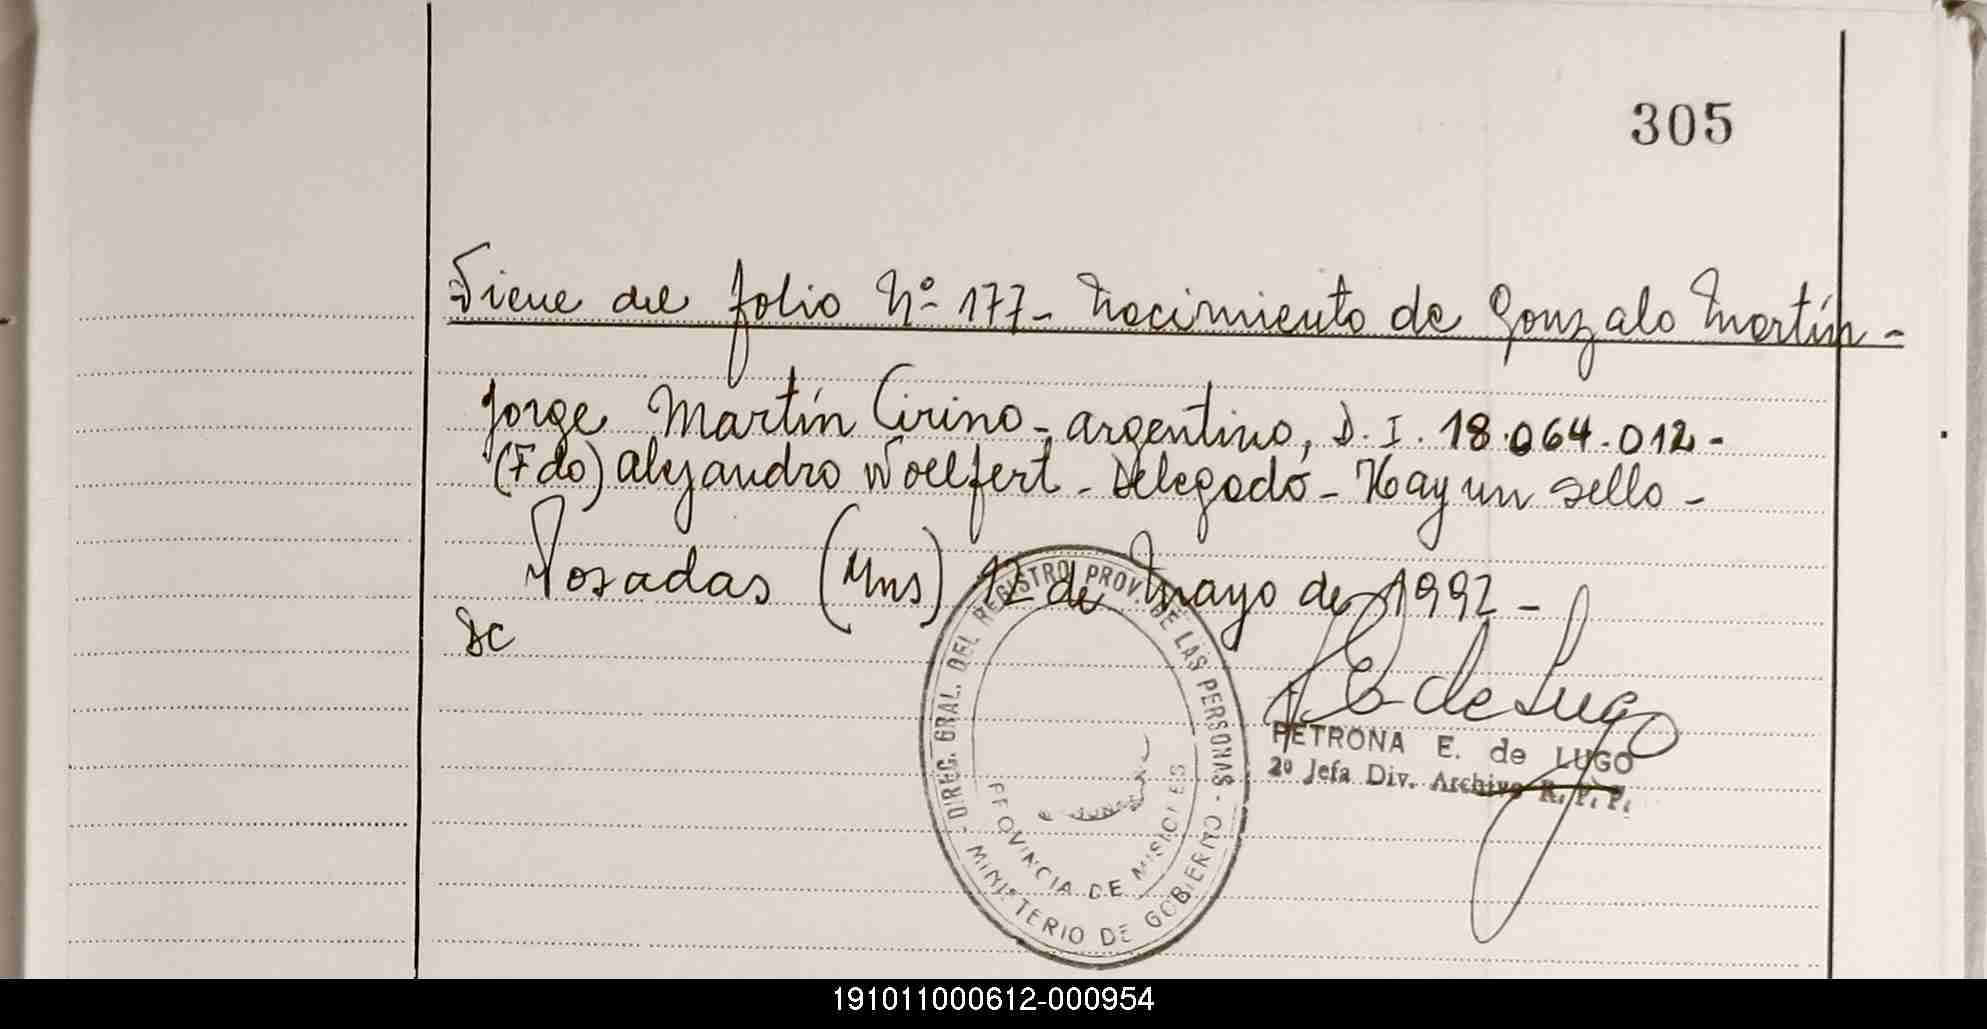 305
Viene del folio Nº 177- Nacimiento de Gonzalo Martín-
Jorge Martín Cirino-, argentino, D.I. 18.064.012-
(Fdo) Alejandro Woelfert - Delegado - Hay un sello -
Posadas (Mns) 12 de Mayo de 1992 -
DC
P E de Lugo
PETRONA E. de LUGO
2º Jefa Div. Archivo R. P. P.
DIREC. GRAL. DEL REGISTRO PROV. DE LAS PERSONAS -
PROVINCIA DE MISIONES
MINISTERIO DE GOBIERNO
191011000612-000954